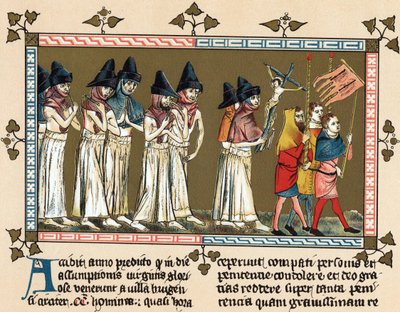 Accidit anno predicto q in die
assumptionis uirginis glori
ose uenerunt a uilla brugen
si circiter .CC. homines quasi hora
ceperunt compati personis et
penitentie condolere et deo gra
tias reddere super tanta peni
tencia quam grauissimam re